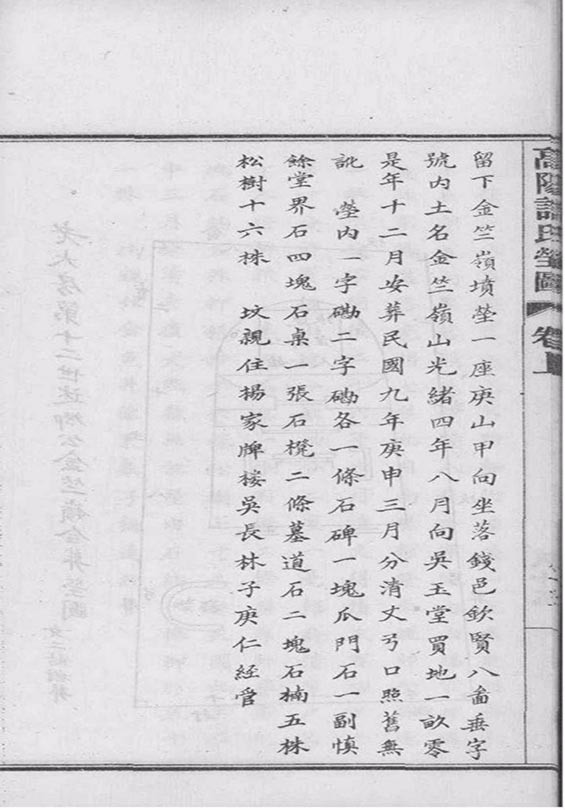 高陽許氏塋圖 卷上
留下金竺嶺墳塋一座庚山甲向坐落錢邑欽賢八啚垂字
號内土名金竺嶺山光緒四年八月向吳玉堂買地一畝零
是年十二月安葬民國九年庚申三月分清丈弓口照舊無
訛 塋内一字磡二字磡各一條石碑一塊瓜門石一副慎
餘堂界石四塊石桌一張石櫈二條墓道石二塊石楠五株
松樹十六株 坟親住楊家牌楼吳長林子庚仁經管